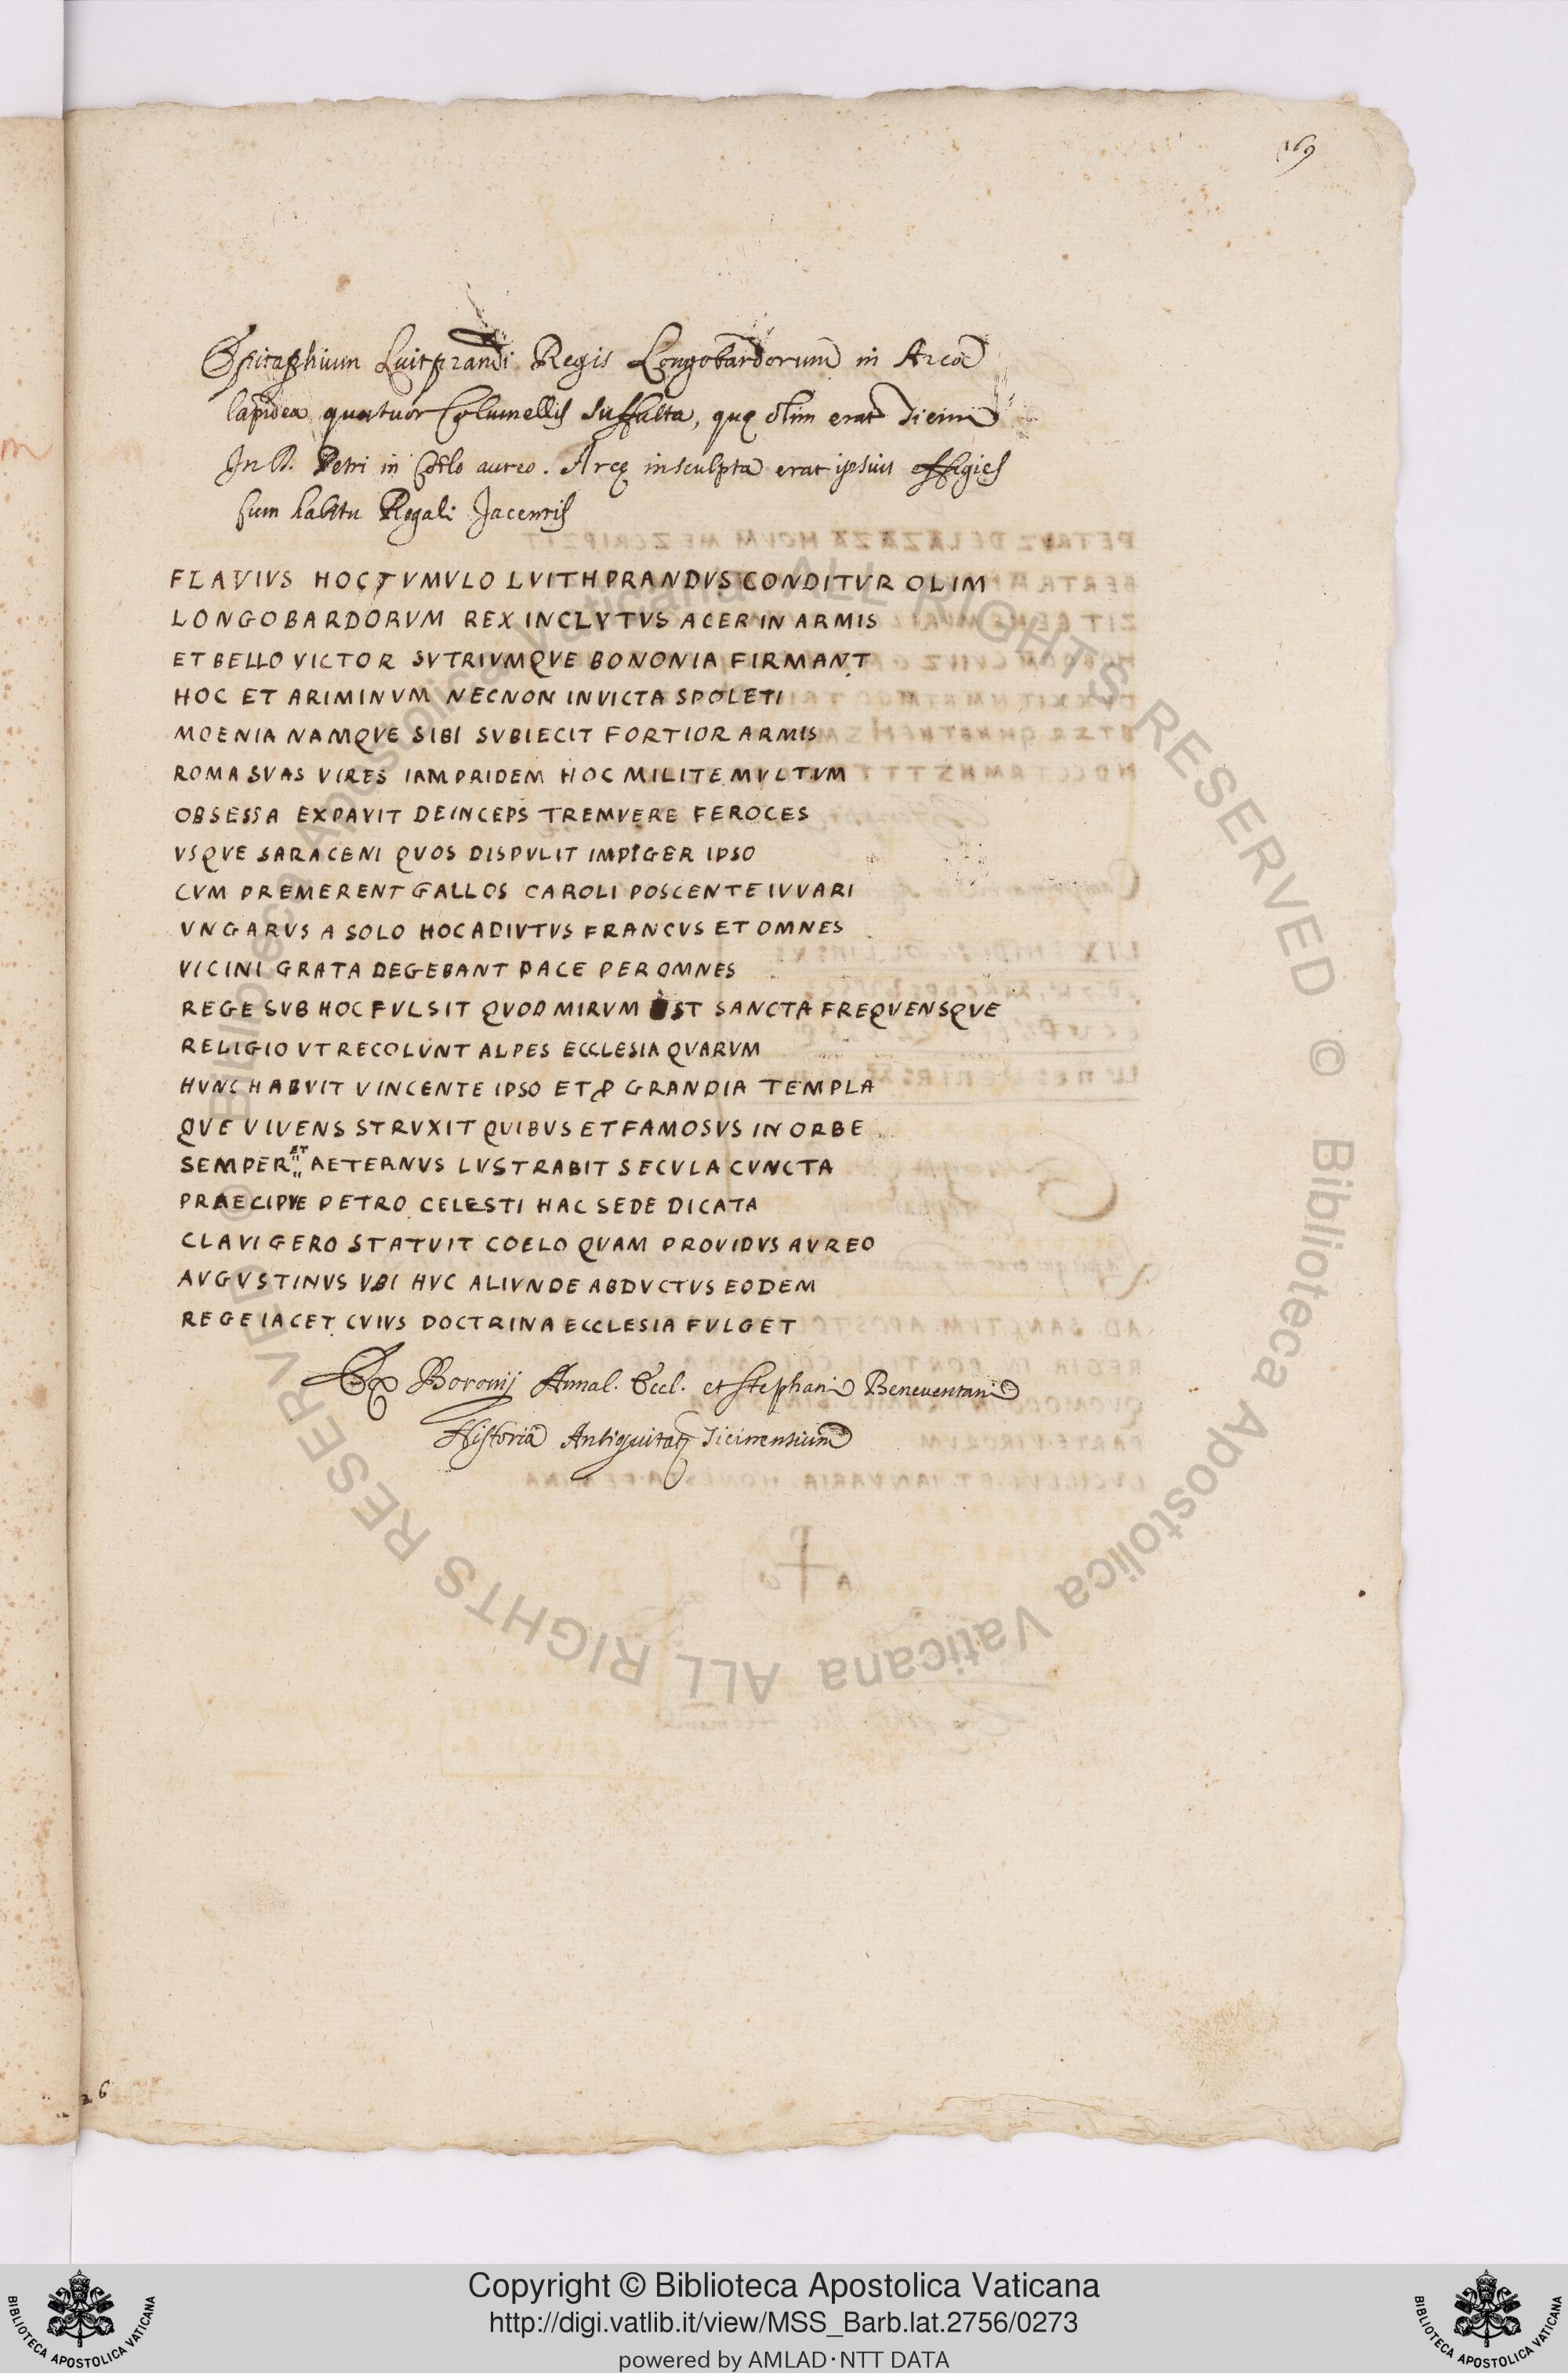 169
Epitaphium Luitprandi Regis Longobardorum in Arca
lapidea quatuor Columellis suffulta, quę olim erat Ticini
In B. Petri in Cœlo aureo. Arcę insculpta erat ipsius effigies
cum habitu Regali Jacentis
FLAVIVS HOC TVMVLO LVITHPRANDVS CONDITVR OLIM
LONGOBARDORVM REX INCLYTVS ACER IN ARMIS
ET BELLO VICTOR SVTRIVMQVE BONONIA FIRMANT
HOC ET ARIMINVM NECNON INVICTA SPOLETI
MOENIA NAMQVE SIBI SVBIECIT FORTIOR ARMIS
ROMA SVAS VIRES IAMPRIDEM HOC MILITE MVLTVM
OBSESSA EXPAVIT DEINCEPS TREMVERE FEROCES
VSQVE SARACENI QVOS DISPVLIT IMPIGER IPSO
CVM PREMERENT GALLOS CAROLI POSCENTE IVVARI
VNGARVS A SOLO HOC ADIVTVS FRANCVS ET OMNES
VICINI GRATA DEGEBANT PACE PER OMNES
REGE SVB HOC FVLSIT QVOD MIRVM EST SANCTA FREQVENSQVE
RELIGIO VT RECOLVNT ALPES ECCLESIA QVARVM
HVNC HABVIT VINCENTE IPSO ET P GRANDIA TEMPLA
QVE VIVENS STRVXIT QVIBVS ET FAMOSVS IN ORBE
SEMPER ET AETERNVS LVSTRABIT SECVLA CVNCTA
PRAECIPVE PETRO CELESTI HAC SEDE DICATA
CLAVIGERO STATVIT COELO QVAM PROVIDVS AVREO
AVGVSTINVS VBI HVC ALIVNDE ABDVCTVS EODEM
REGE IACET CVIVS DOCTRINA ECCLESIA FVLGET
Ex Boronij Annal. Eccl. et Stephani Beneventani
Historia Antiquitatũ Ticinensium
26
© Biblioteca Apostolica Vaticana ALL RIGHTS RESERVED © Biblioteca Apostolica Vaticana ALL RIGHTS RESERVED
Copyright © Biblioteca Apostolica Vaticana
http://digi.vatlib.it/view/MSS_Barb.lat.2756/0273
powered by AMLAD·NTT DATA
BIBLIOTECA APOSTOLICA VATICANA
BIBLIOTECA APOSTOLICA VATICANA